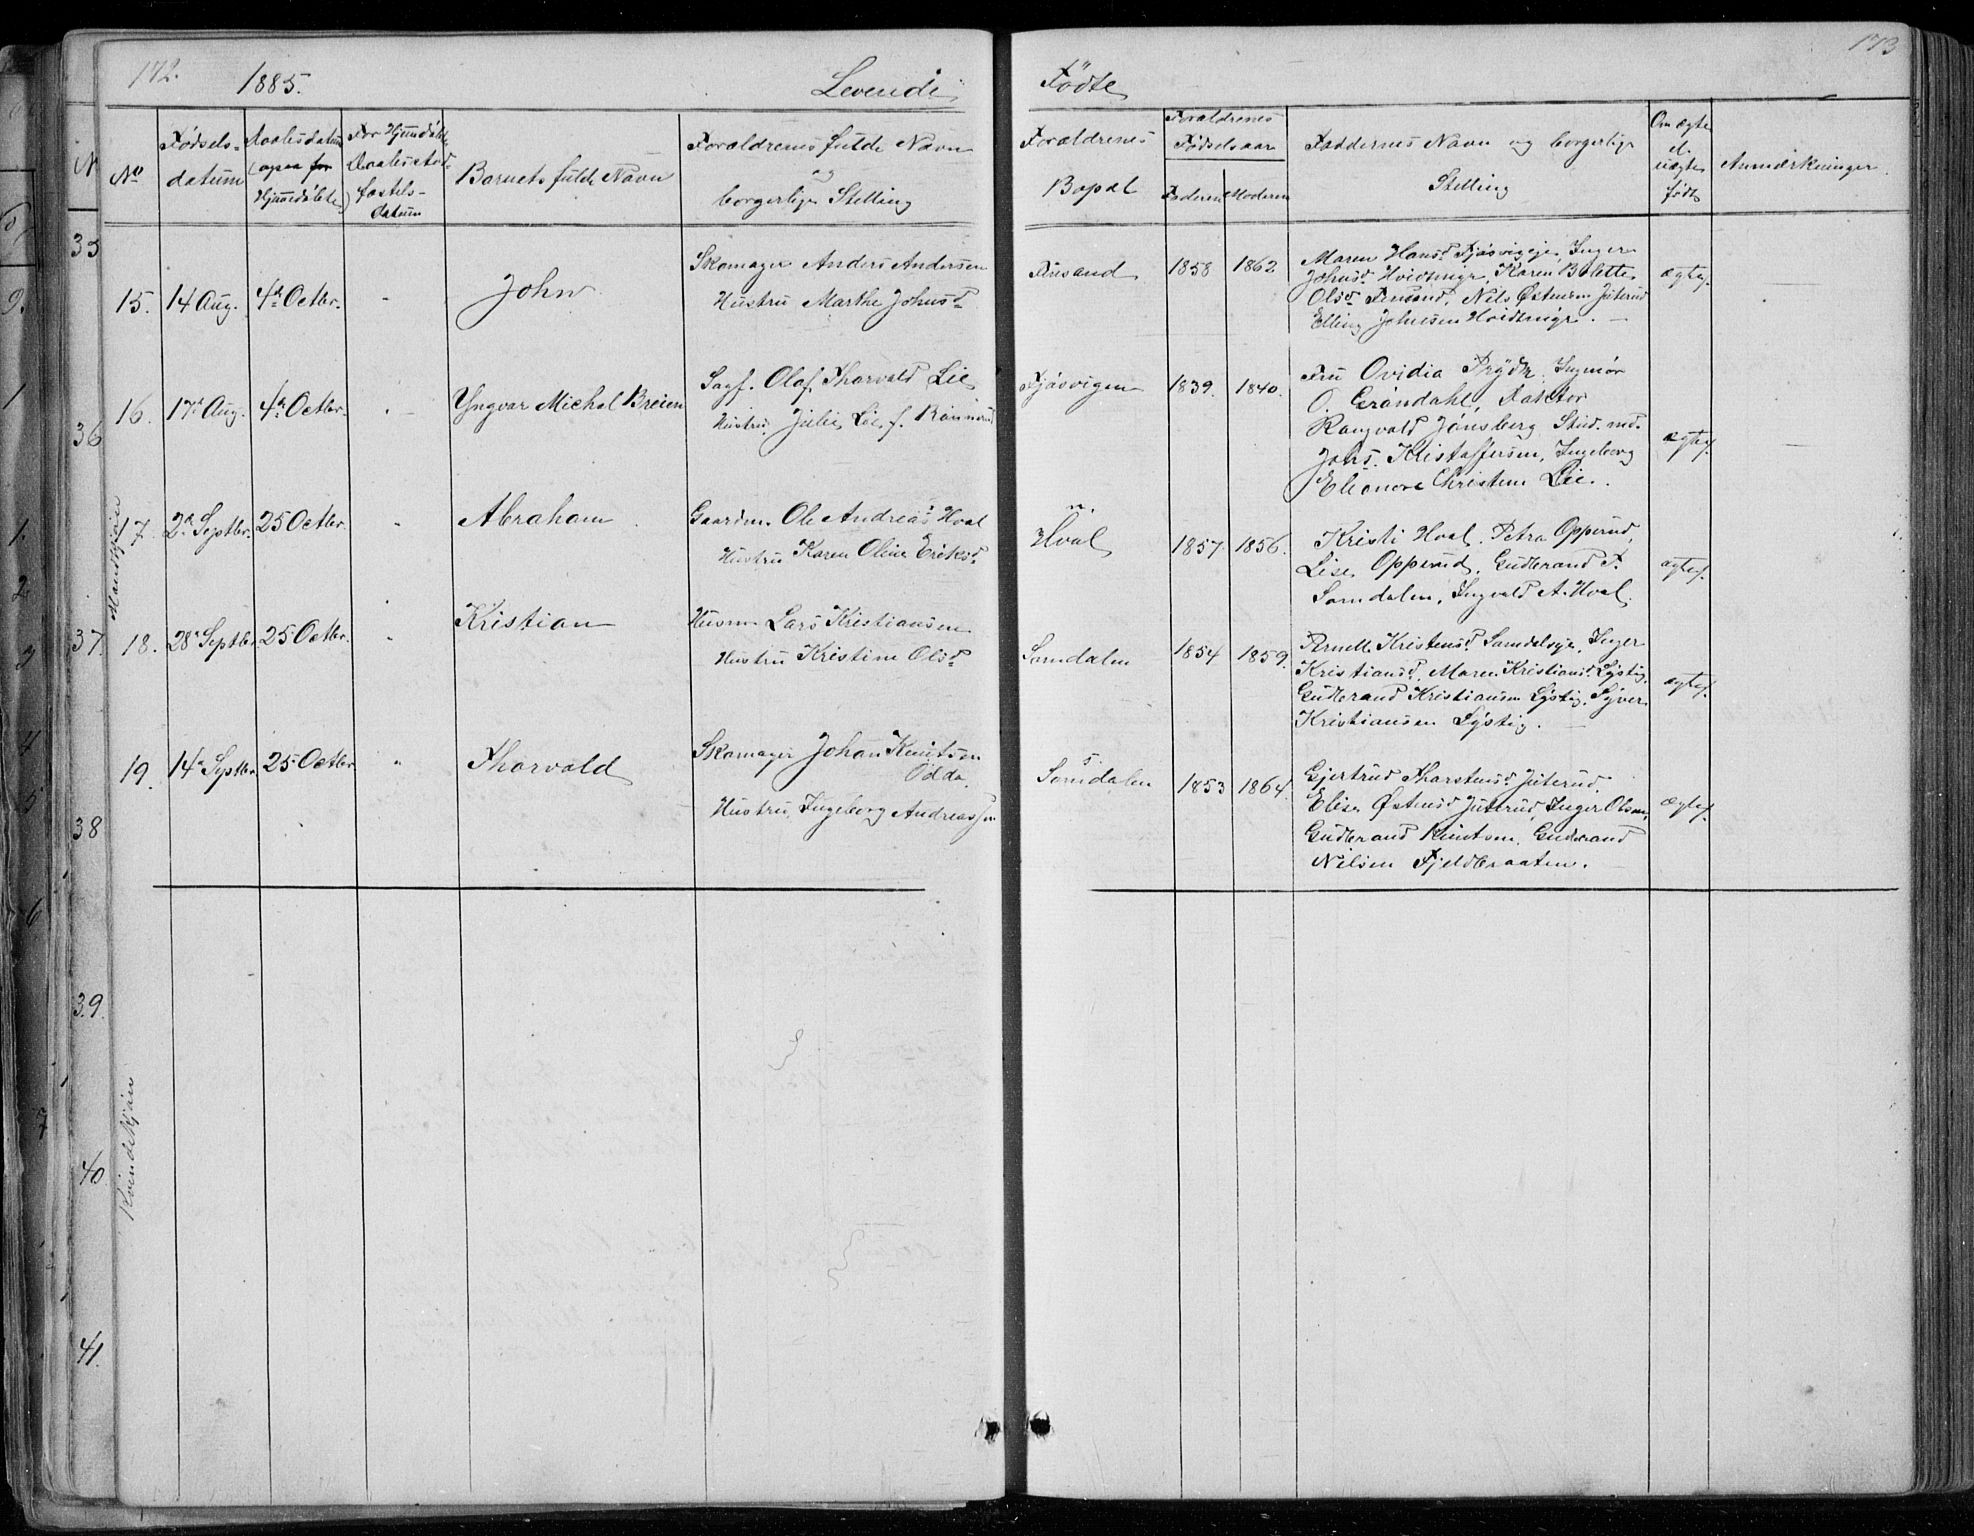 172.
1885.
Levende
Fødte
173
No
Fødsels-
datum
Daabsdatum
(ogsaa for
Hjemmedøbte)
For Hjemmedøbte
Daabsstad-
fæstels-
datum
Barnets fulde Navn
Forældrenes fulde Navn
og
borgerlige Stilling
Forældrenes
Bopæl
Forældrenes
Fødselsaar
Faderen
Moderen
Faddernes Navn og borgerlige
Stilling
Om ægte
el.
uægte
født
Anmærkninger.
Mandkjøn
15. 14 Aug. 4de Octbr. - John
Skomager Anders Andersen
Hustru Marthe Johnsd.
Finsand 1858 1862
Maren Hansd. Fjøsvigeje, Inger
Johnsd. Hvidmyr, Karen Bolette
Olsd. Finsand, Nils Østensen Juterud
Elling Johnsen Hvidmyr. —
ægtef.
16. 17d Aug. 4de Octbr. - Yngvar Michel Breien
Sagf. Olaf Thorvald Lie
Hustru Julie Lie f.
Fjøsvigen 1839. 1840.
Fru Ovidia Prydz, Ingeniør
O. Grøndahl, Faktor
Rangvald Jønsberg Stud. med.
Johs. Kristoffersen, Ingeborg
Eleonore Christine Lie.
ægtef.
17. 2d Septbr. 25 Octbr. - Abraham
Gaardm. Ole Andreas Hval
Hustru Karen Oline Eriksd.
n.
Hval 1857. 1856.
Kristi Hval. Petra Opperud,
Lise Opperud, Gudbrand P.
Somdalen, Ingvald A. Hval.
ægtef.
18. 28d Septbr. 25 Octbr. - Kristian
Husm. Lars Kristiansen
Hustru Kristine Olsd.
Somdalen 1854 1859.
Pernelle Kristensd. Somdalseje, Inger
Kristiansd. Maren Kristiansd. Lystig.
Gudbrand Kristiansen Lystig. Syver
Kristiansen Lystig. —
ægtef.
19. 14d Septbr. 25 Octbr. - Thorvald
Skomager Johan Knutsen
Odda
Hustru Ingeborg Andreassen
s.
Somdalen 1853 1864.
Gjertrud Tharstensd. Juterud.
Elise Østensd. Juterud, Inger Olsen,
Gudbrand Knutsen, Gudbrand
Nilsen Fjeldbraaten.
ægtef.
Kvindekjøn
N
35
36
37.
38
39.
40
41.